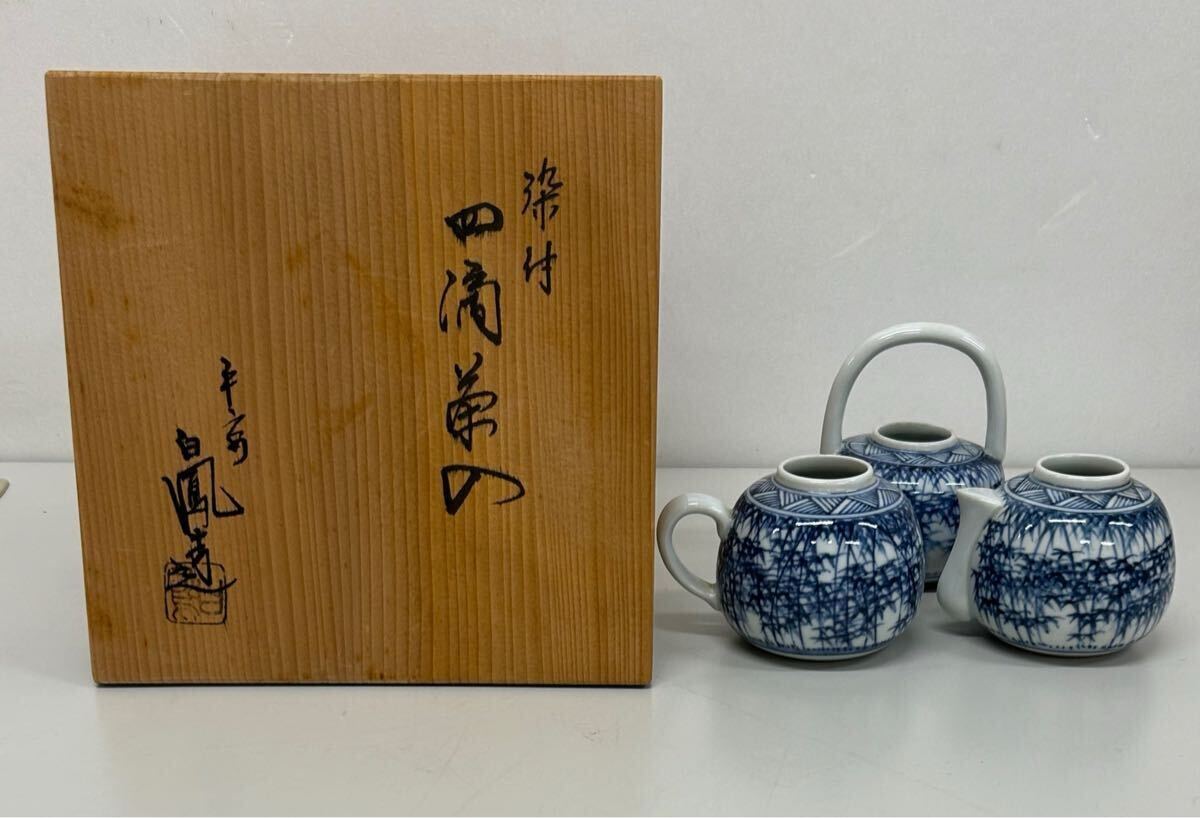 染付
四滴茶入
平安
白鳳造